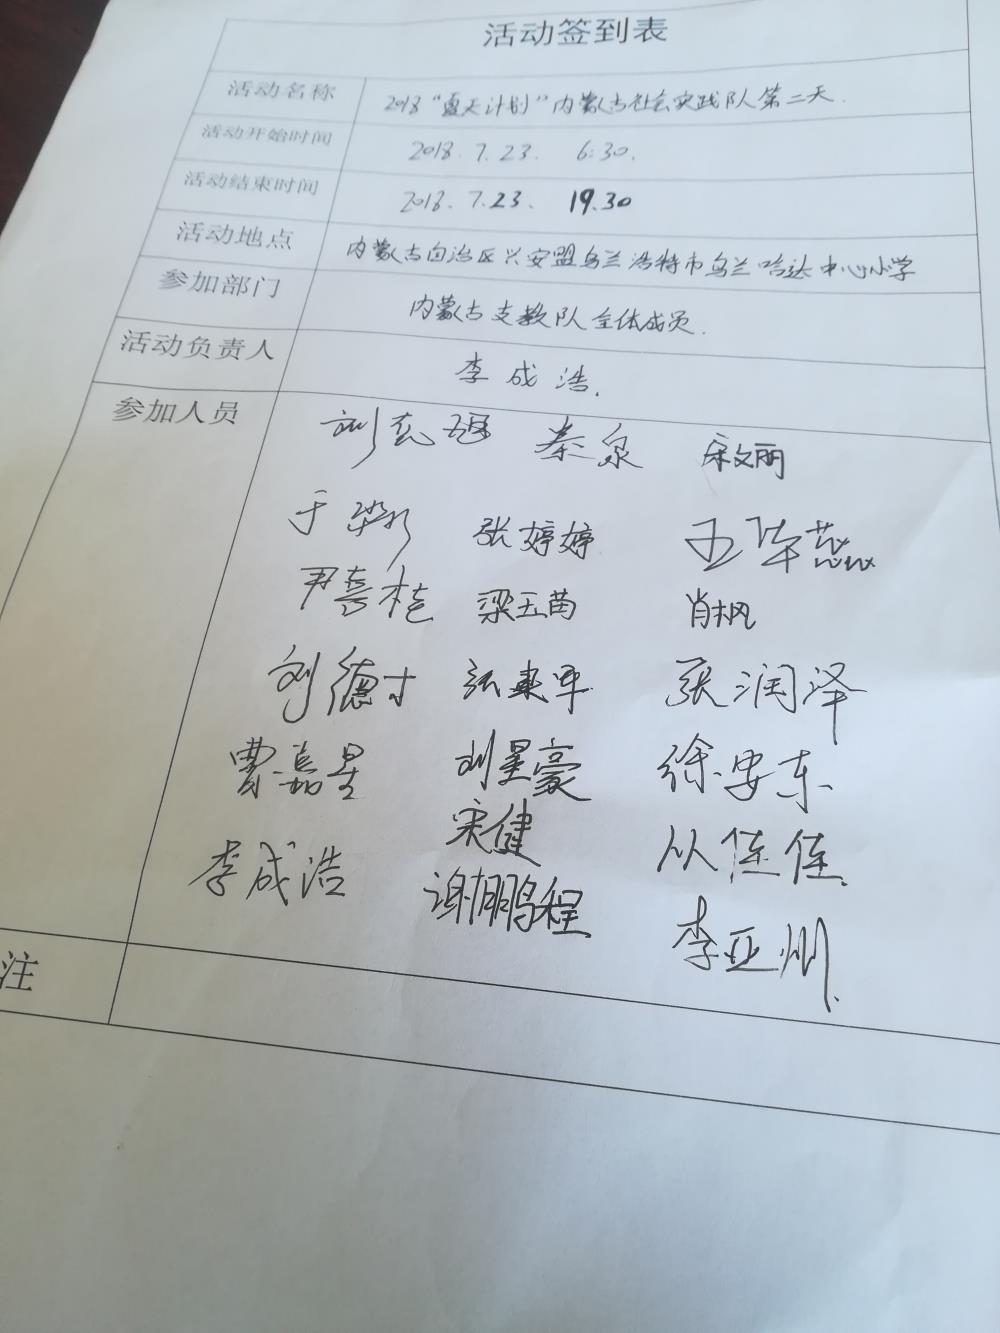 活动签到表
活动名称 2018“夏天计划”内蒙古社会实践队第二天.
活动开始时间 2018.7.23. 6:30.
活动结束时间 2018.7.23. 19.30
活动地点 内蒙古自治区兴安盟乌兰浩特市乌兰哈达中心小学
参加部门 内蒙古支教队全体成员.
活动负责人 李成浩.
参加人员 秦泉 宋文丽
于 张婷婷 王华蕊
尹喜桂 梁玉苗 肖枫
刘德才 张来军 张润泽
曹嘉星 刘星豪 徐安东
宋健 从佳佳
李成浩 谢鹏程 李亚州
注